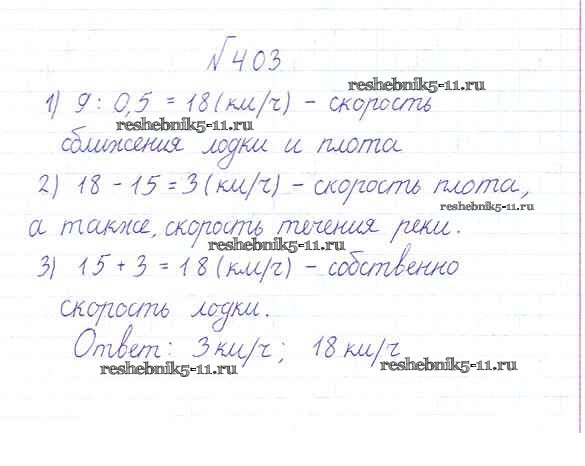 №403
reshebnik5-11.ru
1) 9 : 0,5 = 18 (км/ч) – скорость
reshebnik5-11.ru
сближения лодки и плота
2) 18 – 15 = 3 (км/ч) – скорость плота,
reshebnik5-11.ru
а также, скорость течения реки.
reshebnik5-11.ru
3) 15 + 3 = 18 (км/ч) – собственно
скорость лодки.
Ответ: 3 км/ч; 18 км/ч
reshebnik5-11.ru reshebnik5-11.ru